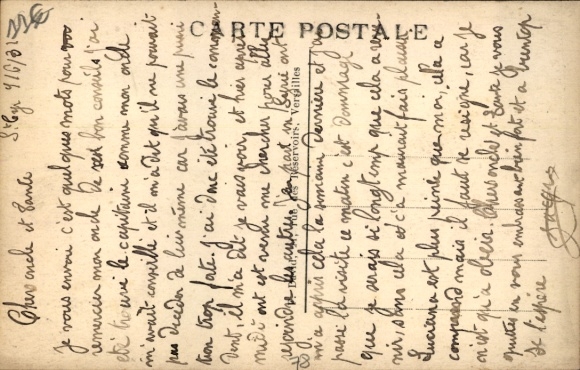 CARTE POSTALE
St Cyr 9/6/31
Chers oncle et tante
je vous envoi c'est quelques mots pour
remercier mon oncle de ses bon conseils j'ai
été trouvé le capitaine comme mon oncle
m'avait conseillé et il m'a dit qu'il ne pouvait
pas décider de lui même car j'avais une puni
tion trop forte. J'ai donc été trouvé le comman
dant, il m'a dit je vais voir et hier après
midi ont est venu me chercher pour aller
rejoindre les autres
m'a appris cela la semaine dernière et j'ai
passé la visite ce matin c'est dommage
que je serais si longtemp que cela a re
nir, sans cela et ç'a m'aurait fais plaisir
Lucienne est plus peinée que moi, elle a
comprend mais il faut se resigné, car je
n'est qu'a obéir. Chers oncle et tante je vous
quittes en vous embrassant bien fort et a bientot
je l'espère
Réservoirs, Versailles